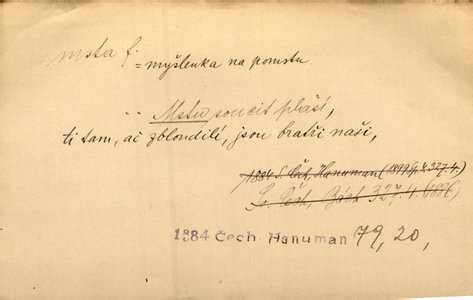 msta f.
= myšlenka na pomstu
.. Mstu soucit plaší,
ti tam, ač zbloudilí, jsou bratři naši,
1884 S. Čech, Hanuman (1899) 327.4.)
Sv. Čech, 327.4. (1896)
1884 Čech, Hanuman 79, 20,